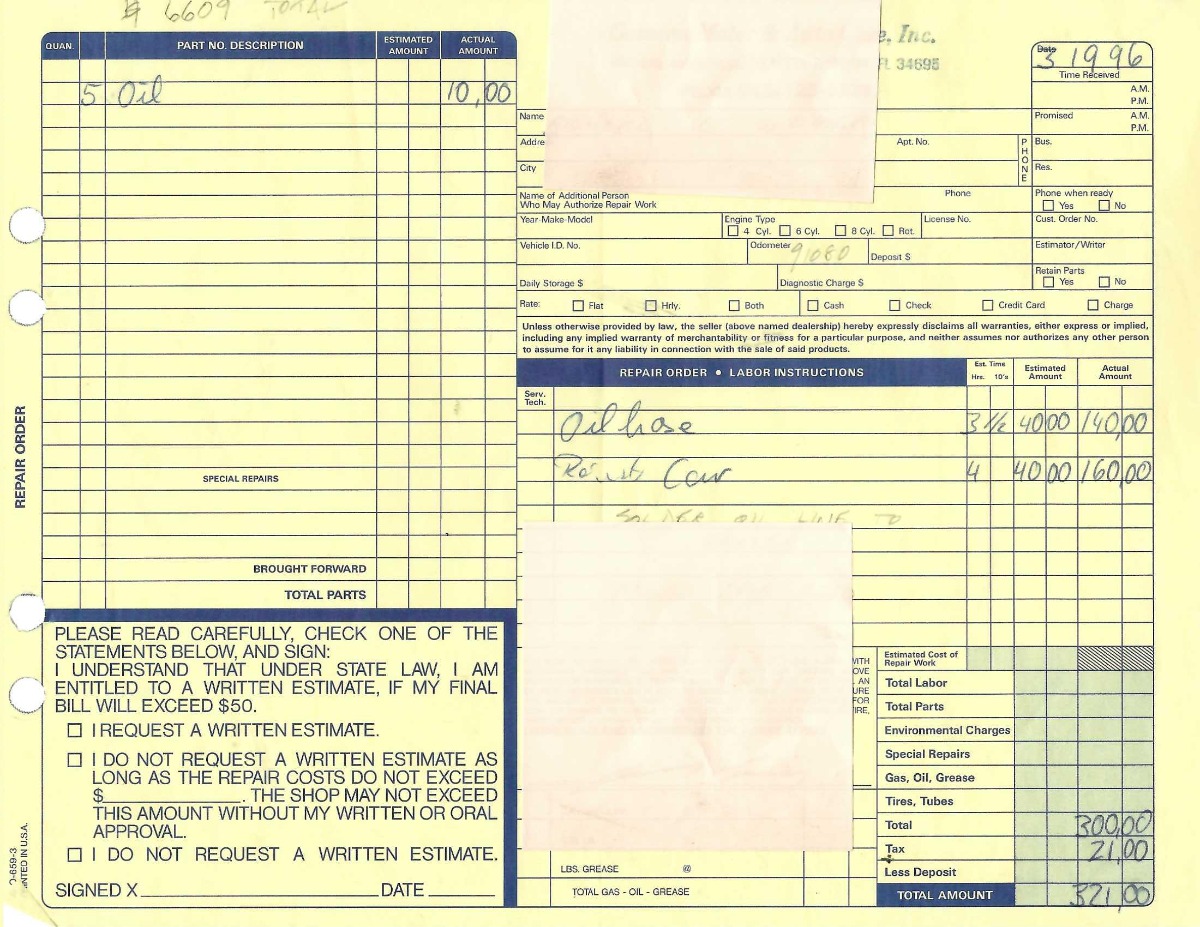 $ 6609 TOTAL
QUAN. PART NO. DESCRIPTION ESTIMATED AMOUNT ACTUAL AMOUNT
5 Oil 10,00
SPECIAL REPAIRS
BROUGHT FORWARD
TOTAL PARTS
REPAIR ORDER
PLEASE READ CAREFULLY, CHECK ONE OF THE
STATEMENTS BELOW, AND SIGN:
I UNDERSTAND THAT UNDER STATE LAW, I AM
ENTITLED TO A WRITTEN ESTIMATE, IF MY FINAL
BILL WILL EXCEED $50.
I REQUEST A WRITTEN ESTIMATE.
I DO NOT REQUEST A WRITTEN ESTIMATE AS
LONG AS THE REPAIR COSTS DO NOT EXCEED
$ . THE SHOP MAY NOT EXCEED
THIS AMOUNT WITHOUT MY WRITTEN OR ORAL
APPROVAL.
I DO NOT REQUEST A WRITTEN ESTIMATE.
SIGNED X DATE
-659-3
NTED IN U.S.A.
e, Inc.
FL 34695
Date
3 1996
Time Received
A.M.
P.M.
Name
Promised A.M.
P.M.
Addre Apt. No. PHONE Bus.
City Res.
Name of Additional Person Phone
Who May Authorize Repair Work
Phone when ready
Yes No
Year-Make-Model Engine Type License No. Cust. Order No.
4 Cyl. 6 Cyl. 8 Cyl. Rot.
Vehicle I.D. No. Odometer 91080 Deposit $ Estimator/Writer
Daily Storage $ Diagnostic Charge $ Retain Parts
Yes No
Rate: Flat Hrly. Both Cash Check Credit Card Charge
Unless otherwise provided by law, the seller (above named dealership) hereby expressly disclaims all warranties, either express or implied,
including any implied warranty of merchantability or fitness for a particular purpose, and neither assumes nor authorizes any other person
to assume for it any liability in connection with the sale of said products.
REPAIR ORDER • LABOR INSTRUCTIONS Est. Time Hrs. 10's Estimated Amount Actual Amount
Serv.
Tech.
Oil hose 3 1/2 4000 140,00
Car 4 4000 160,00
SOLDER OIL LINE TO
WITH
OVE
AN
URE
FOR
IRE,
Estimated Cost of
Repair Work
Total Labor
Total Parts
Environmental Charges
Special Repairs
Gas, Oil, Grease
Tires, Tubes
Total 300,00
Tax 21,00
Less Deposit
TOTAL AMOUNT 321,00
LBS. GREASE @
TOTAL GAS - OIL - GREASE